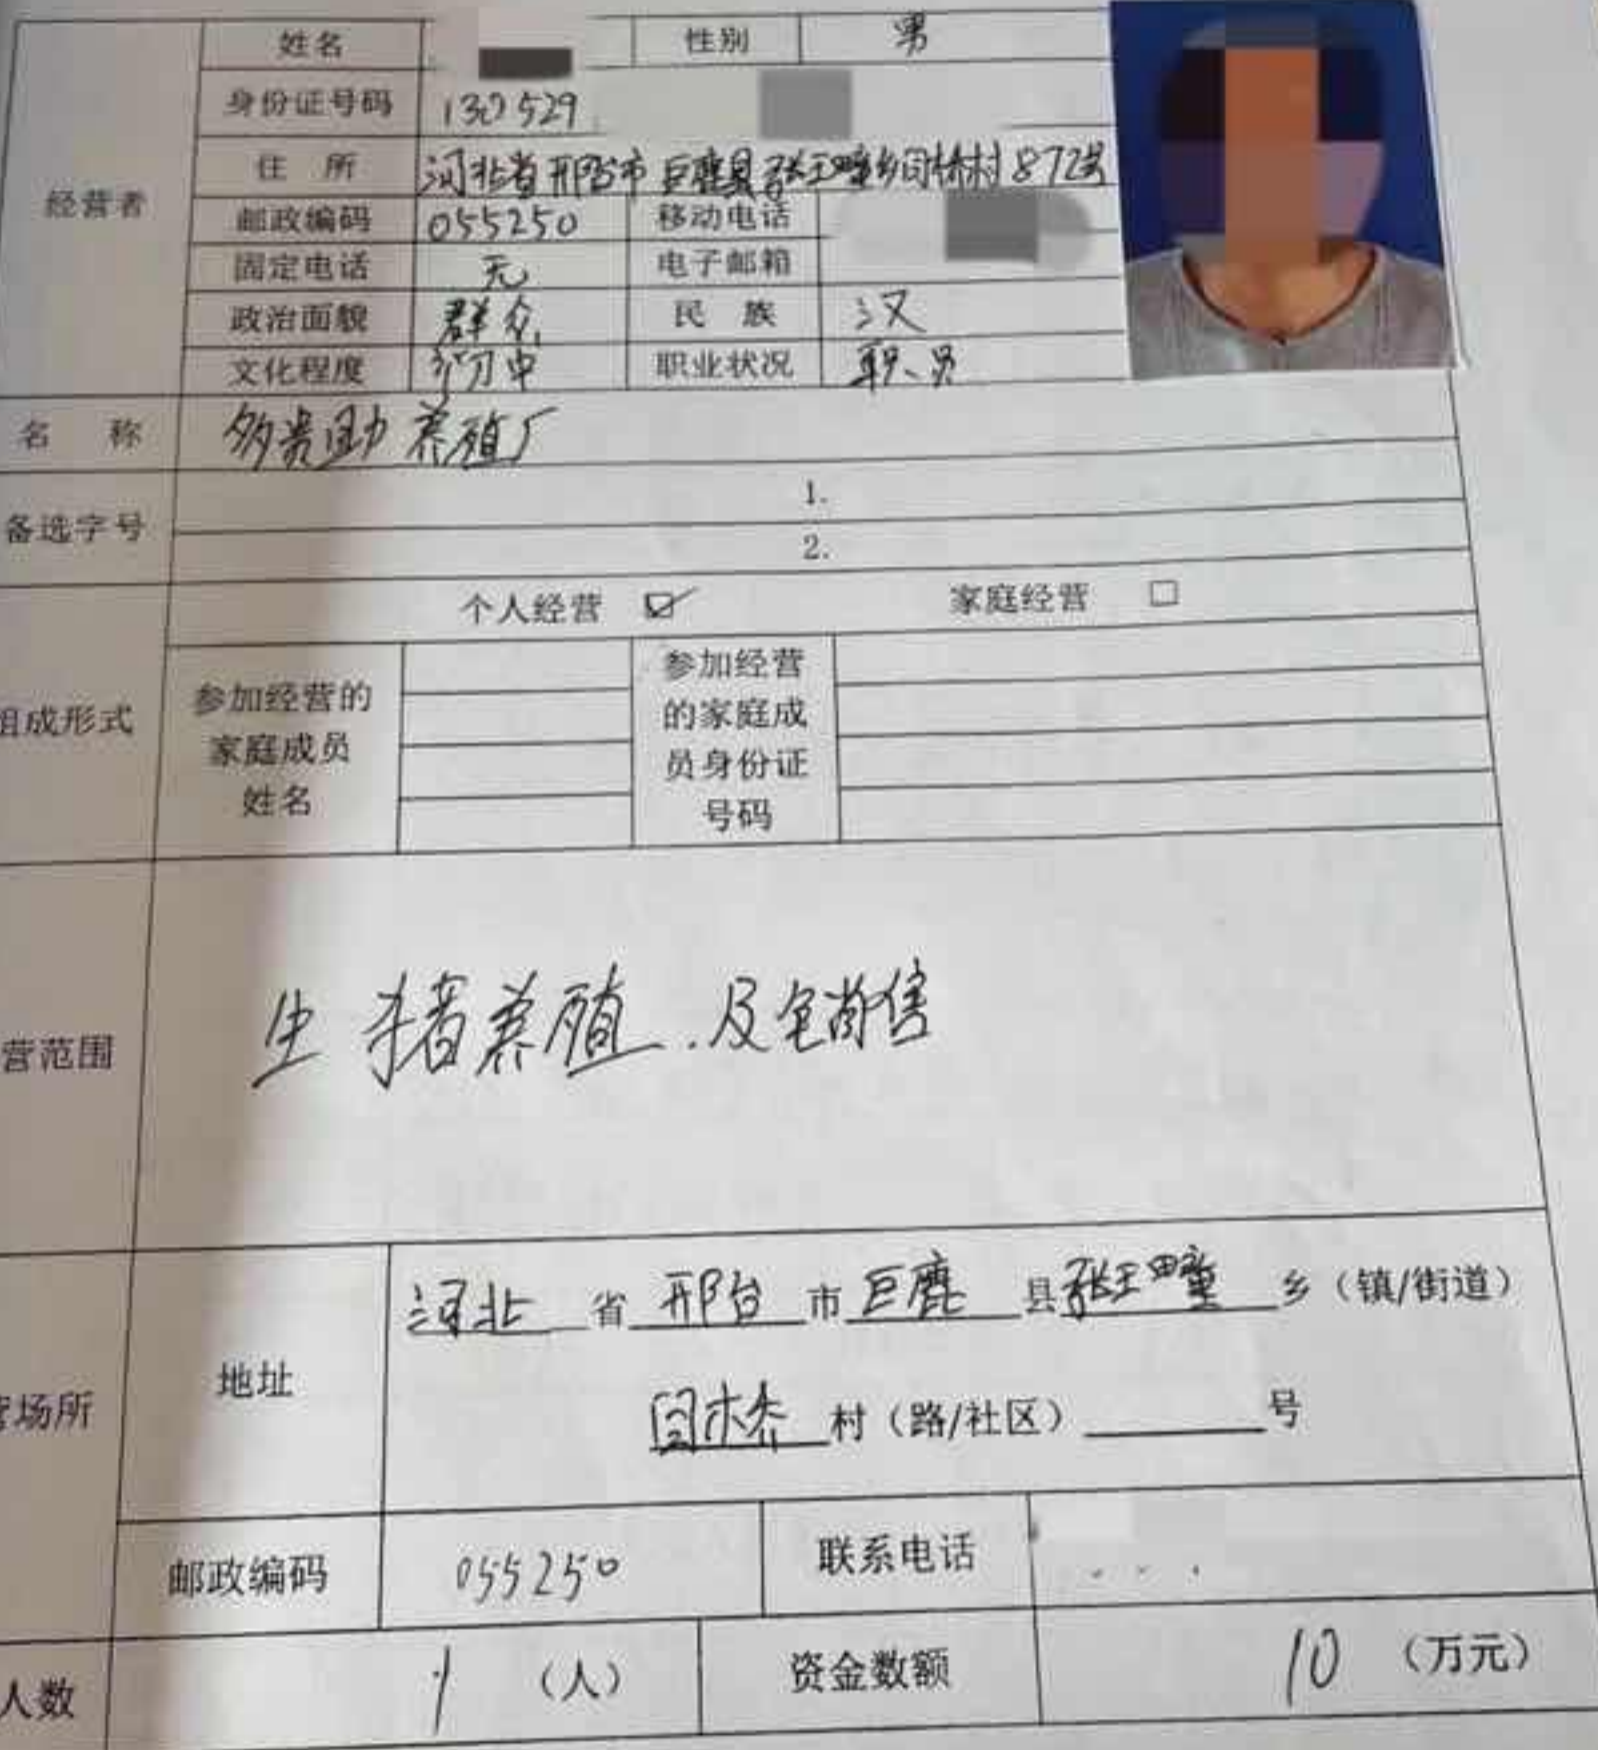 姓名 性别 男
身份证号码 130529
住所 河北省邢台市巨鹿县张王疃乡闫桥村872号
经营者
邮政编码 055250 移动电话
固定电话 无 电子邮箱
政治面貌 群众 民族 汉
文化程度 初中 职业状况 职员
名称 养殖厂
备选字号 1.
2.
个人经营 ☑ 家庭经营 □
组成形式
参加经营的家庭成员姓名
参加经营的家庭成员身份证号码
营范围 生猪养殖.及 销售
河北省邢台市巨鹿县张王疃乡（镇/街道）
地址
营场所
闫桥村（路/社区）号
邮政编码 055250 联系电话
人数 1（人） 资金数额 10（万元）